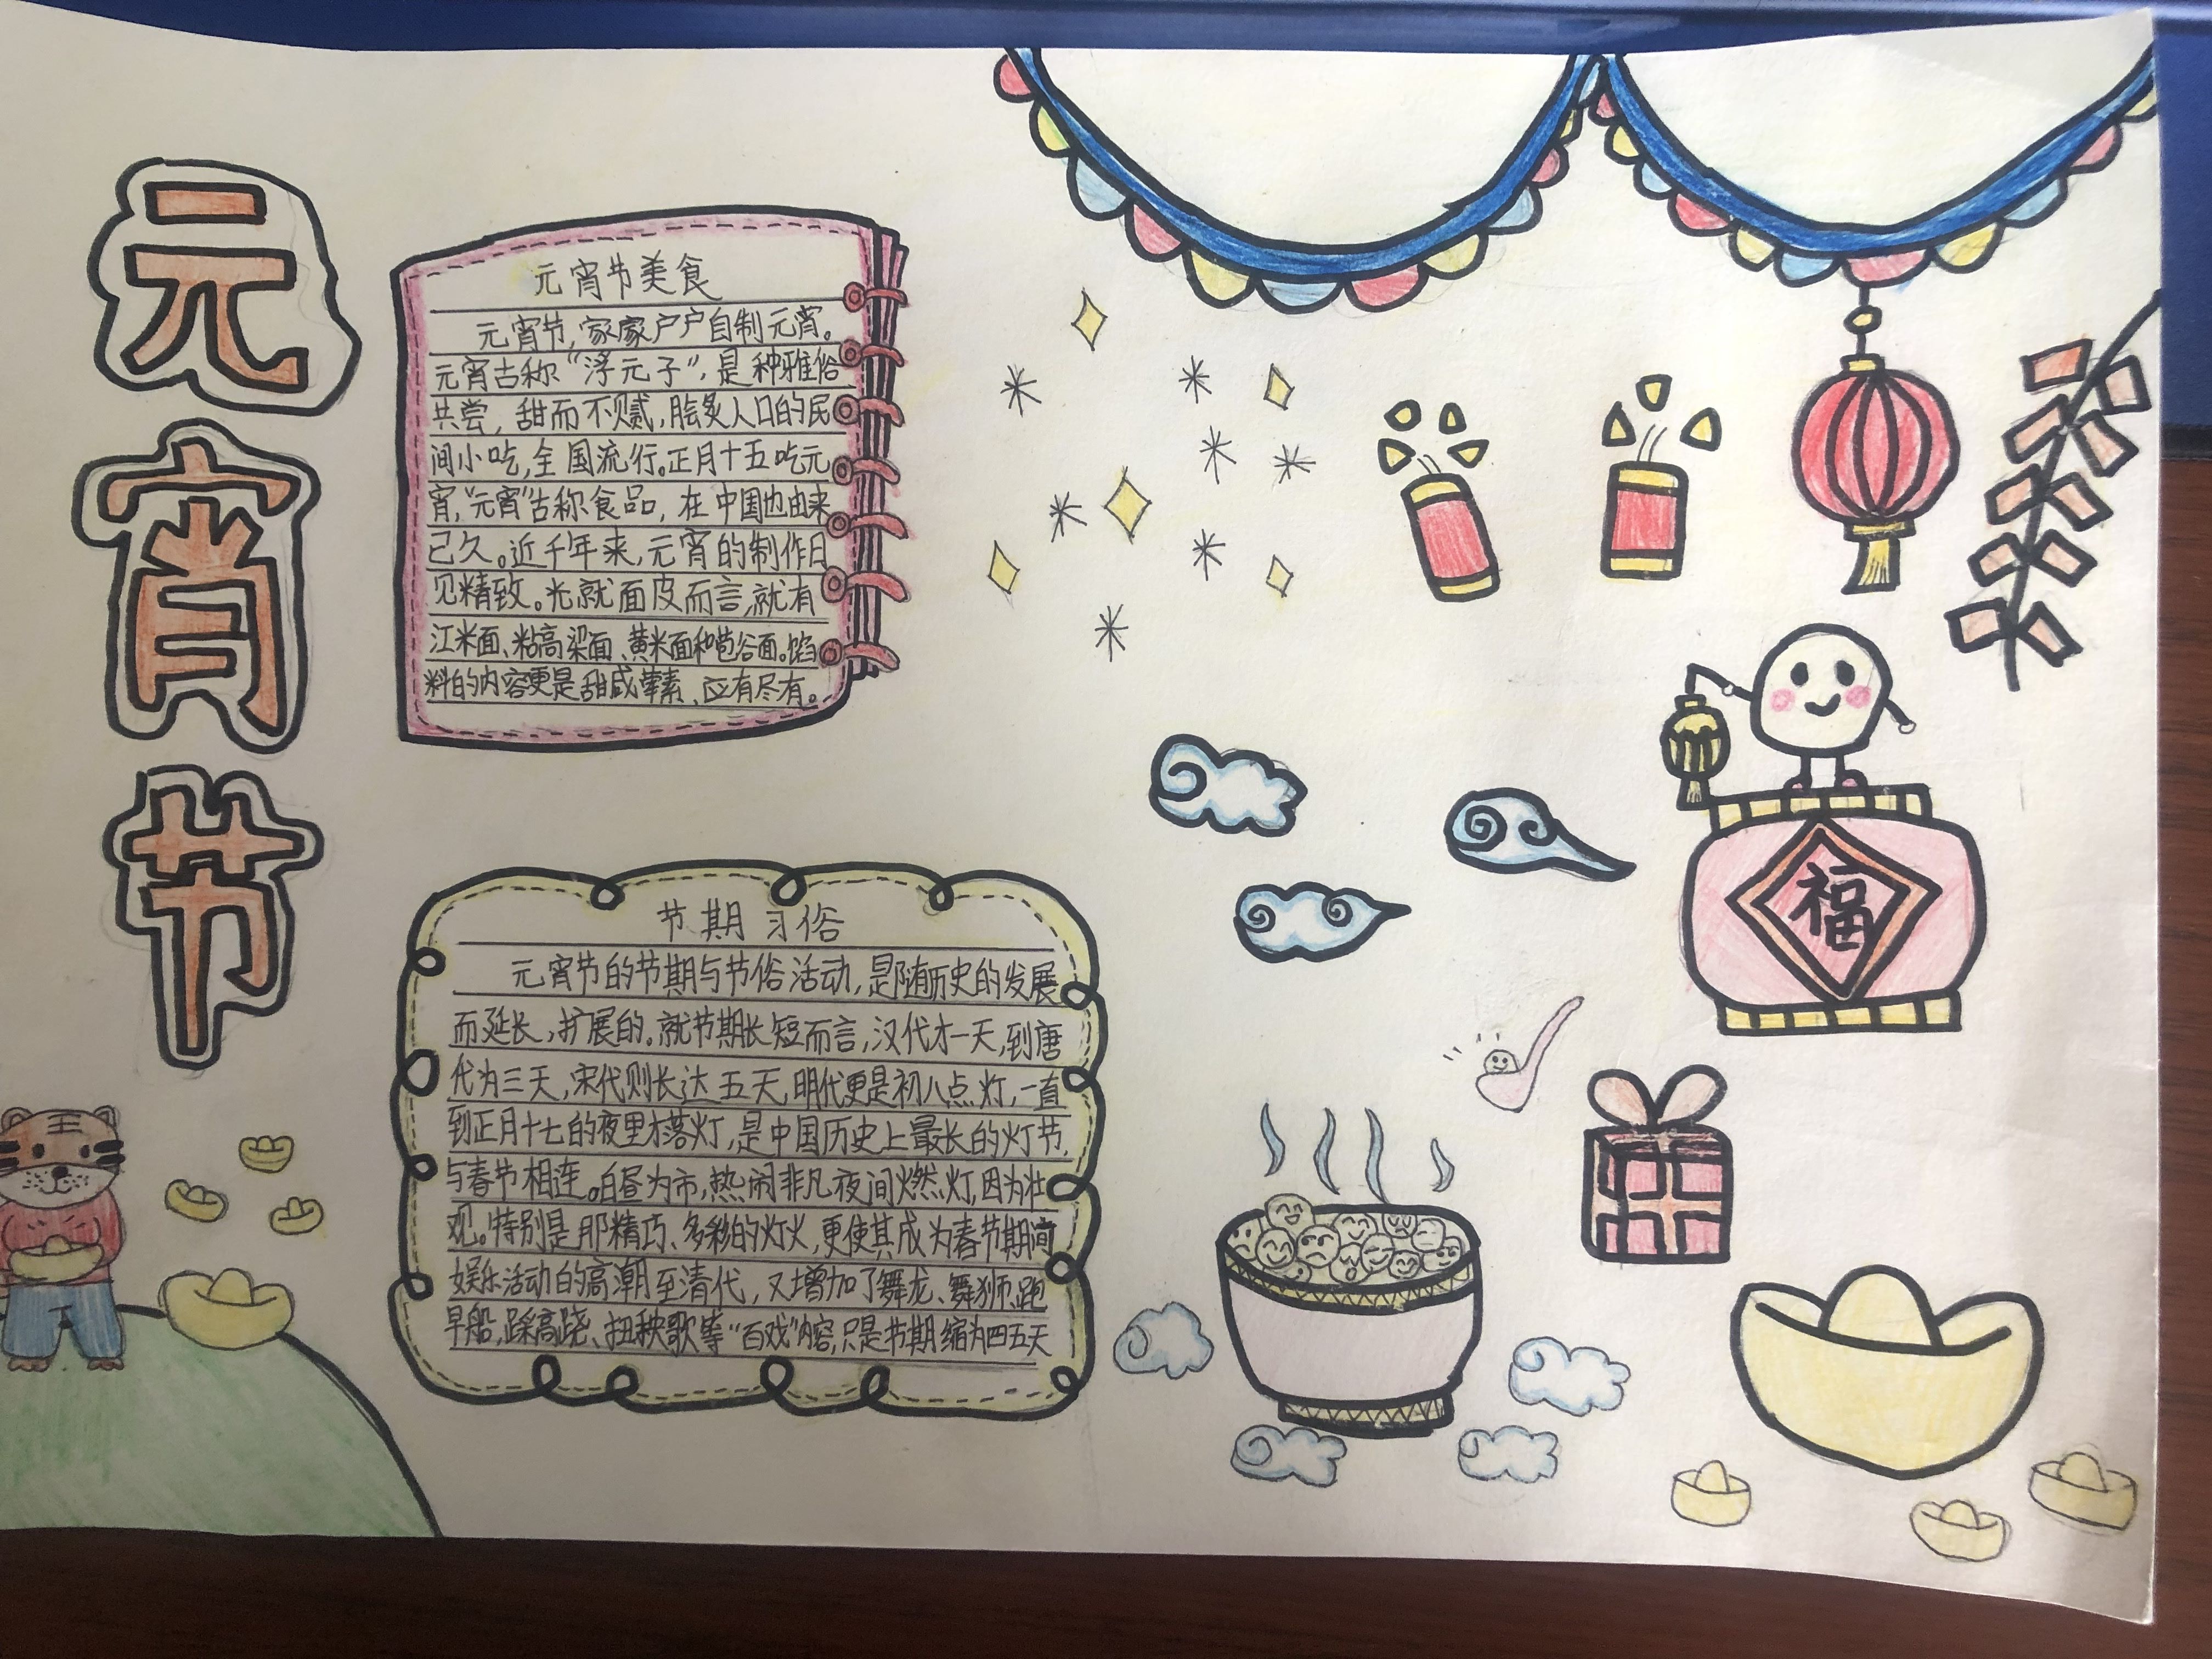 元宵节
元宵节美食
元宵节,家家户户自制元宵。
元宵古称“浮元子”,是种雅俗
共尝,甜而不腻,脍炙人口的民
间小吃,全国流行。正月十五吃元
宵,“元宵”古称食品,在中国也由来
已久。近千年来,元宵的制作日
见精致。光就面皮而言,就有
江米面、粘高梁面、黄米面和苞谷面。馅
料的内容更是甜咸荤素、应有尽有。
节期习俗
元宵节的节期与节俗活动,是随历史的发展
而延长,扩展的。就节期长短而言,汉代才一天,到唐
代为三天,宋代则长达五天,明代更是初八点灯,一直
到正月十七的夜里才落灯,是中国历史上最长的灯节,
与春节相连。白昼为市,热闹非凡夜间燃灯,因为壮
观。特别是那精巧、多彩的灯火,更使其成为春节期间
娱乐活动的高潮至清代,又增加了舞龙、舞狮、跑
旱船,踩高跷、扭秧歌等“百戏”内容,只是节期缩为四五天
福
王